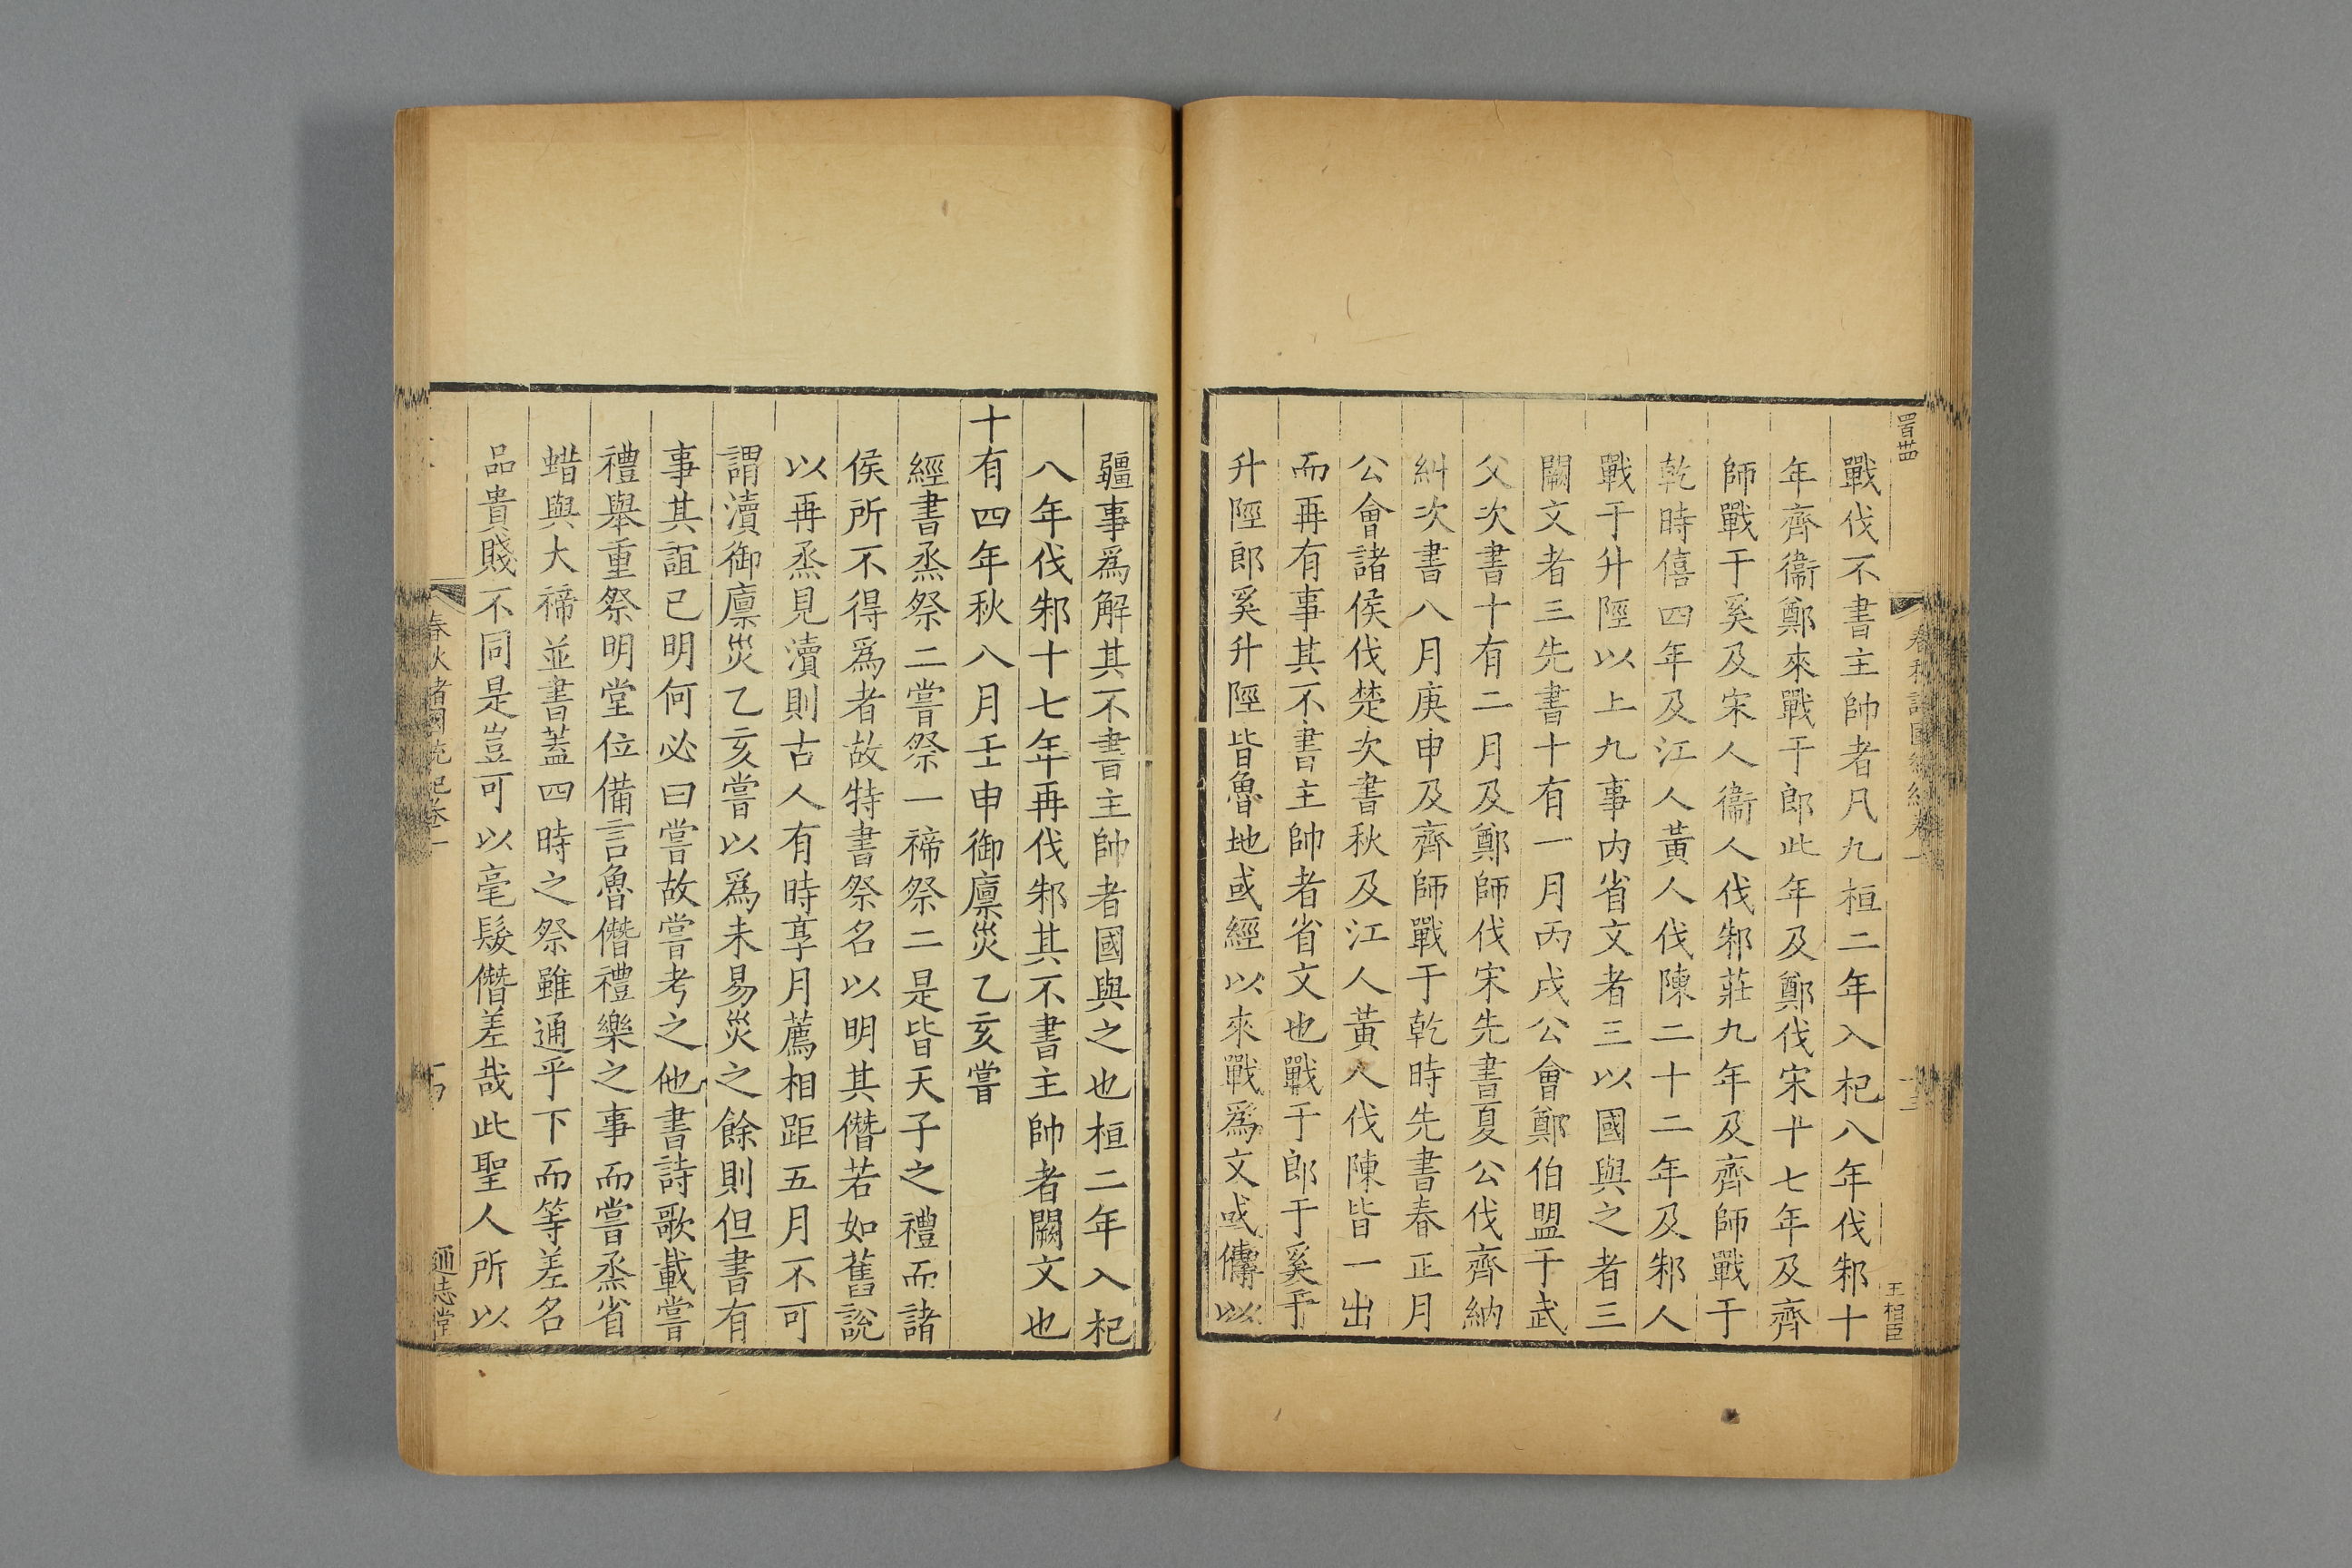 戰伐不書主帥者凡九桓二年入杞八年伐邾十
年齊衞鄭來戰于郎此年及鄭伐宋十七年及齊
師戰于奚及宋人衞人伐邾莊九年及齊師戰于
乾時僖四年及江人黃人伐陳二十二年及邾人
戰于升陘以上九事内省文者三以國與之者三
闕文者三先書十有一月丙戌公會鄭伯盟于武
父次書十有二月及鄭師伐宋先書夏公伐齊納
糾次書八月庚申及齊師戰于乾時先書春正月
公會諸侯伐楚次書秋及江人黃人伐陳皆一出
而再有事其不書主帥者省文也戰于郎于奚于
升陘郎奚升陘皆魯地或經以來戰爲文或傳以
王相臣
疆事爲解其不書主帥者國與之也桓二年入杞
八年伐邾十七年再伐邾其不書主帥者闕文也
十有四年秋八月壬申御廩災乙亥嘗
經書烝祭二嘗祭一禘祭二是皆天子之禮而諸
侯所不得爲者故特書祭名以明其僭若如舊說
以再烝見瀆則古人有時享月薦相距五月不可
謂瀆御廩災乙亥嘗以爲未易災之餘則但書有
事其誼已明何必曰嘗故嘗考之他書詩歌載嘗
禮舉重祭明堂位備言魯僭禮樂之事而嘗烝省
蜡與大禘並書蓋四時之祭雖通乎下而等差名
品貴賤不同是豈可以毫髮僭差哉此聖人所以
春秋諸國統紀卷一
通志堂